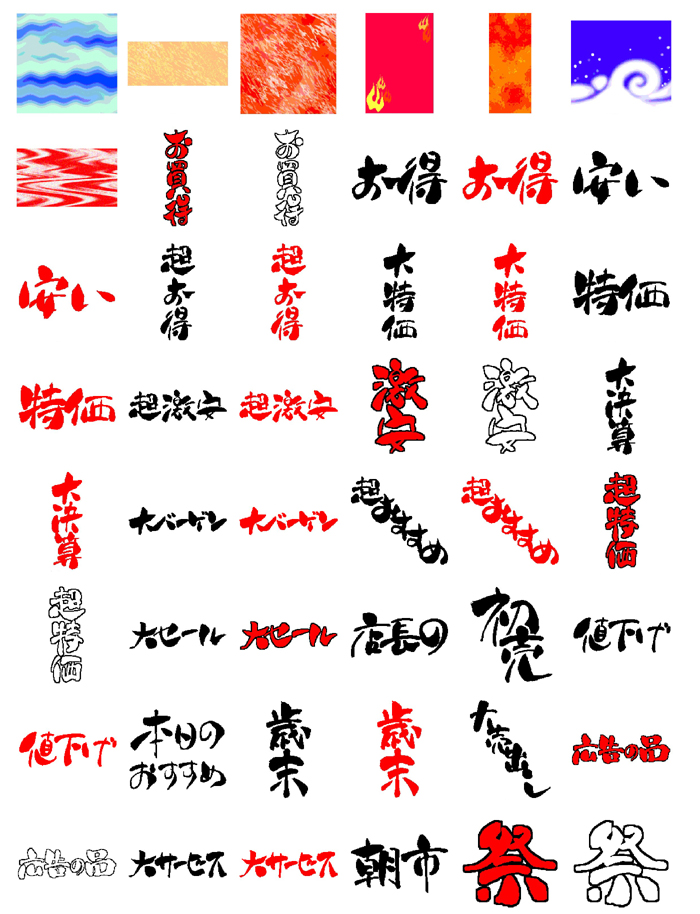 お買得
お買得
お得
お得
安い
安い
超お得
超お得
大特価
大特価
特価
特価
超激安
超激安
激安
激安
大決算
大決算
大バーゲン
大バーゲン
超おすすめ
超おすすめ
超特価
超特価
大セール
大セール
店長の
初売
値下げ
値下げ
本日の
おすすめ
歳末
歳末
大売出し
広告の品
広告の品
大サービス
大サービス
朝市
祭
祭